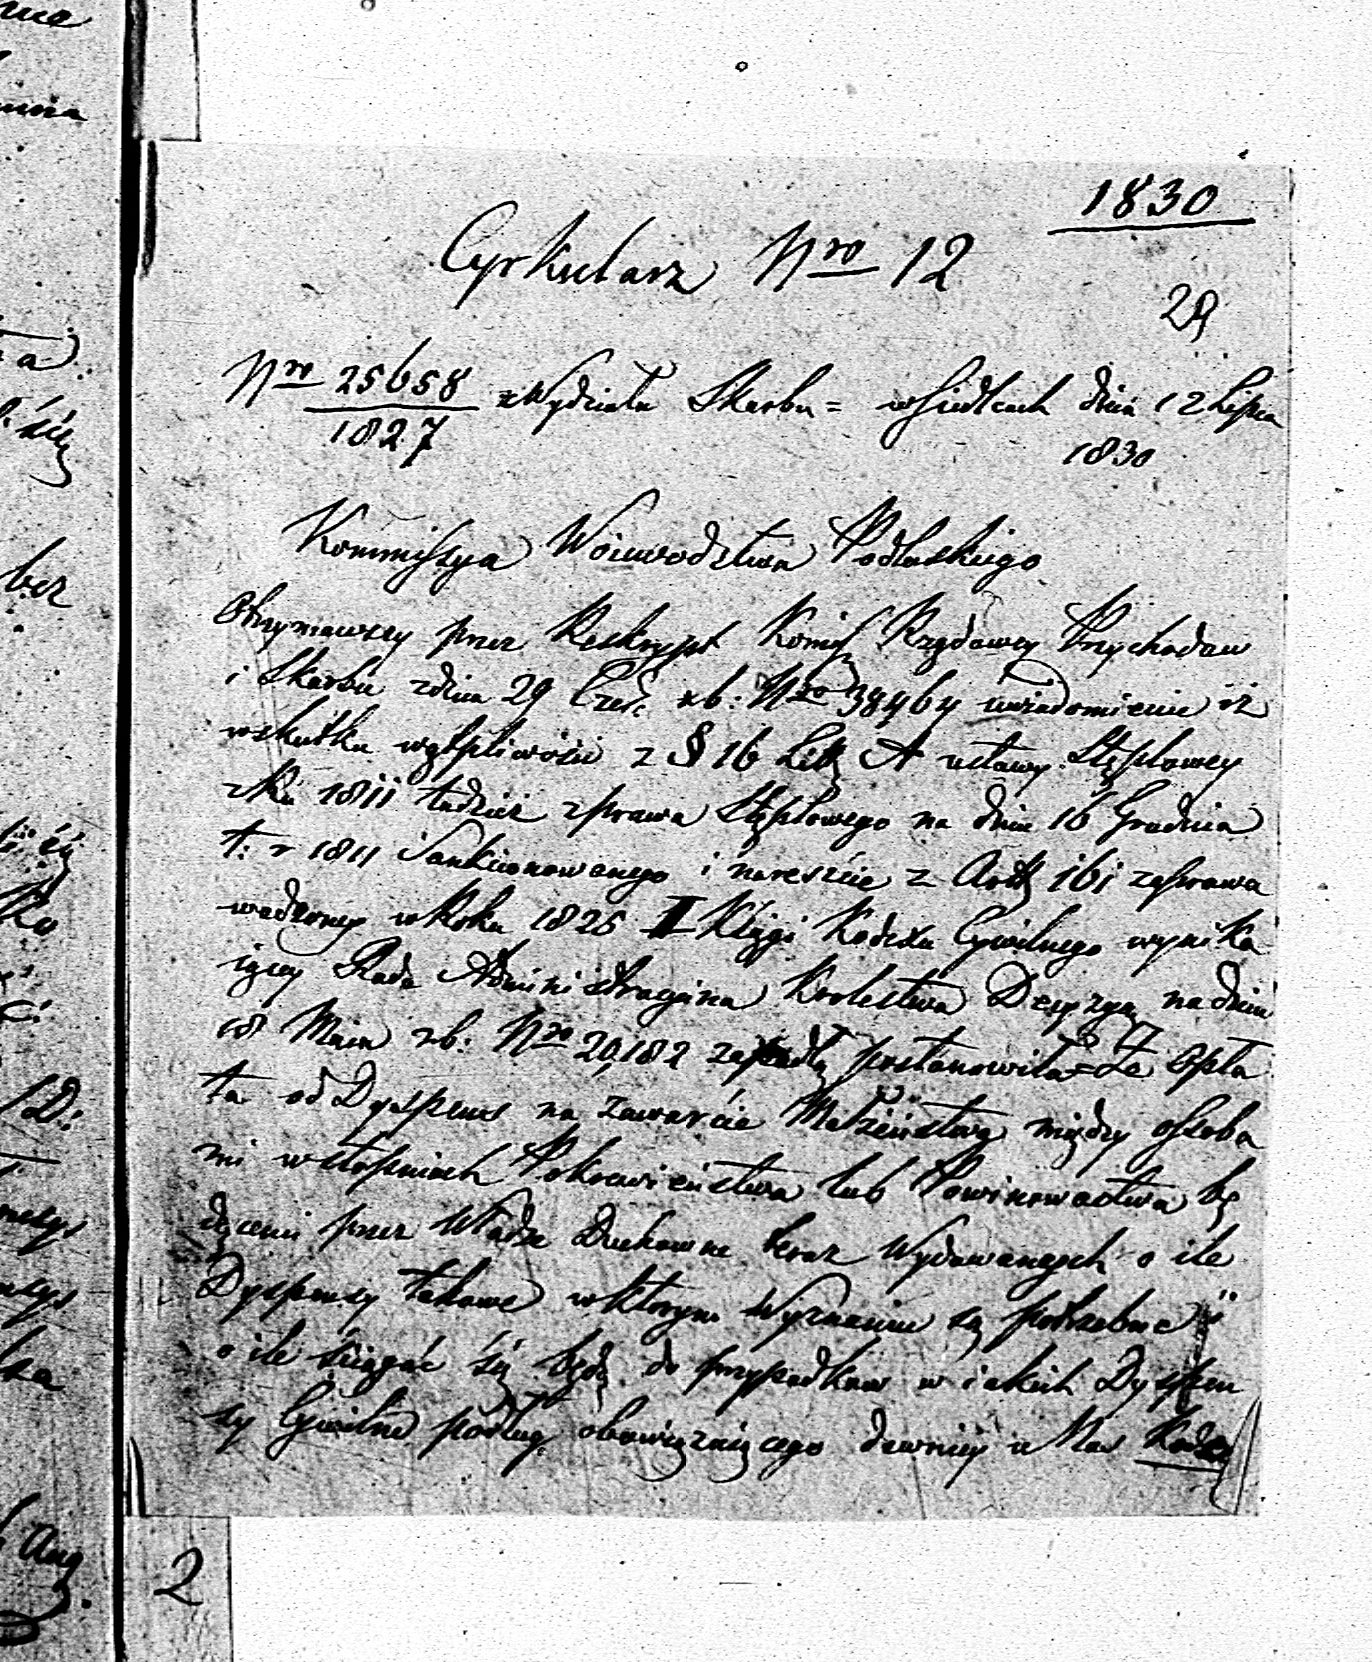 1830
Cyrkularz Nro 12
29
Nro 25658 z Wydziału Skarbu = w Siedlcach dnia 12 Lipca
1827
1830
Kommissya Woiewodztwa Podlaskiego
Otrzymawszy przez Reskrypt Kommiss Rządowey Przychodow
i Skarbu z dnia 29 Czer. r b: Nro 38464 uwiadomienie iż
w skutku wątpliwości z § 16 Litt A ustawy Stęplowey
z Ru 1811 tudzież z prawa Stęplowego na dniu 16 Grudnia
t: r 1811 Sankcionowanego i nareszcie z Artt 161 zaprowa
wadzoney w Roku 1825 I Xięgi Kodexu Cywilnego wynika
iącey Rada Administracyina Krolestwa Decyzyą na dniu
18 Maia r b: Nro 20,182 zapadłą postanowiła = Że Opła
ta od Dyspens na zawarcie Małżeństwa między osoba
mi w stopniach Pokrewieństwa lub Powinowactwa bę
dącemi przez Władze Duchowne teraz Wydawanych o ile
Dyspensy takowe w ktorym Wyznaniu są potrzebne i
o ile ściągać się będą do przypadkow w iakich Dyspen
sy Cywilne podług obowiązuiącego dawniey u Nas Kodex
2